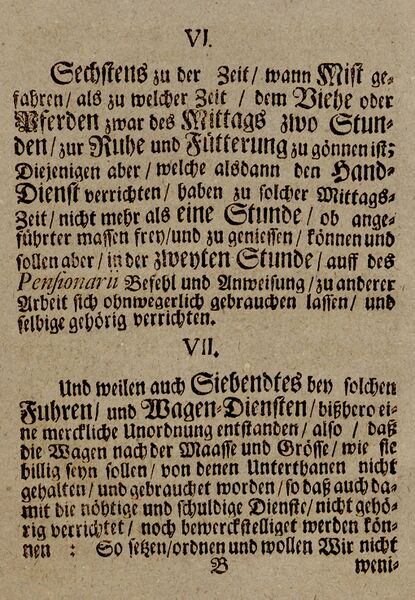 VI.
Sechstens zu der Zeit / wann Mist ge-
fahren / als zu welcher Zeit / dem Viehe oder
Pferden zwar des Mittags zwo Stun-
den / zur Ruhe und Fütterung zu gönnen ist;
Diejenigen aber / welche alsdann den Hand-
Dienst verrichten / haben zu solcher Mittags-
Zeit / nicht mehr als eine Stunde / ob ange-
führter massen frey / und zu geniessen / können und
sollen aber / in der zweyten Stunde / auff des
Pensionarii Befehl und Anweisung / zu anderer
Arbeit sich ohnwegerlich gebrauchen lassen / und
selbige gehörig verrichten.
VII.
Und weilen auch Siebendtes bey solchen
Fuhren / und Wagen-Diensten / bißhero ei-
ne merckliche Unordnung entstanden / also / daß
die Wagen nach der Maasse und Grösse / wie sie
billig seyn sollen / von denen Unterthanen nicht
gehalten / und gebrauchet worden / so daß auch da-
mit die nöhtige und schuldige Dienste / nicht gehö-
rig verrichtet / noch bewerckstelliget werden kön-
nen : So setzen / ordnen und wollen Wir nicht
B weni-